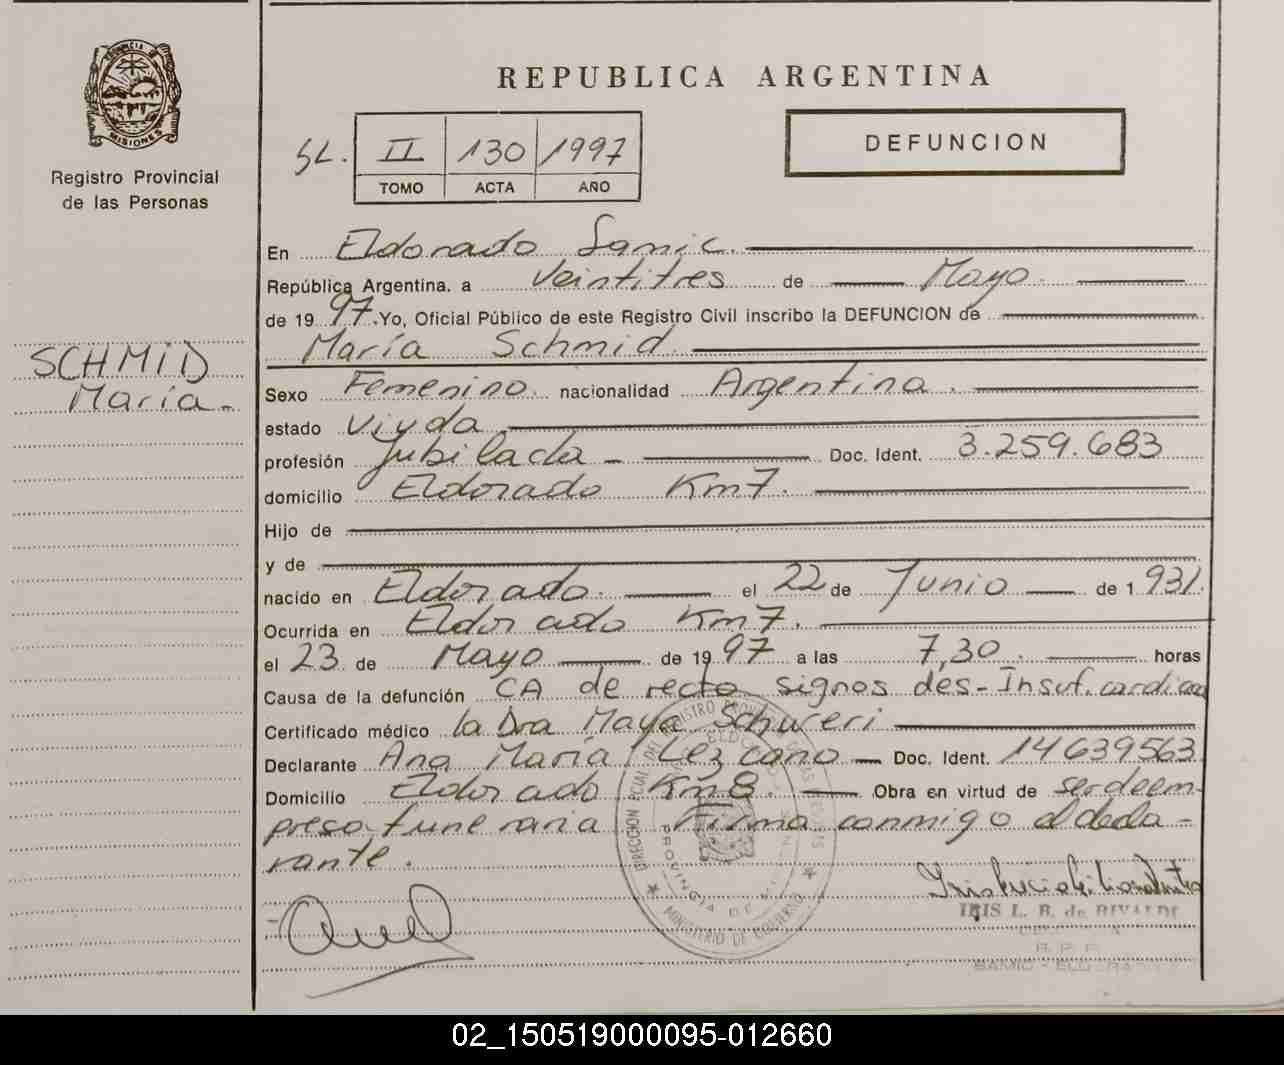 PROVINCIA DE
MISIONES
Registro Provincial
de las Personas
SCHMID
María.-
REPUBLICA ARGENTINA
SL. II 130 1997
TOMO ACTA AÑO
DEFUNCION
En Eldorado Samic.
República Argentina, a Veintitres de Mayo.
de 19 97. Yo, Oficial Público de este Registro Civil inscribo la DEFUNCION de
María Schmid.
Sexo Femenino. nacionalidad Argentina.
estado Viuda
profesión Jubilada - Doc. Ident. 3.259.683
domicilio Eldorado Km7.
Hijo de
y de
nacido en Eldorado. el 22 de Junio de 1 931.
Ocurrida en Eldorado Km7.
el 23 de Mayo de 19 97 a las 7,30. horas
Causa de la defunción CA de recto signos des- Insuf. cardiaca
Certificado médico la Dra Maya Schweri
Declarante Ana María Lezcano - Doc. Ident. 14639563
Domicilio Eldorado Km8. Obra en virtud de ser de em-
presa funeraria Firma conmigo el decla-
rante.
IRIS L. B. de RIVALDI
R. P. P.
SAMIC - ELDORADO
MINISTERIO DE GOBIERNO
02_150519000095-012660